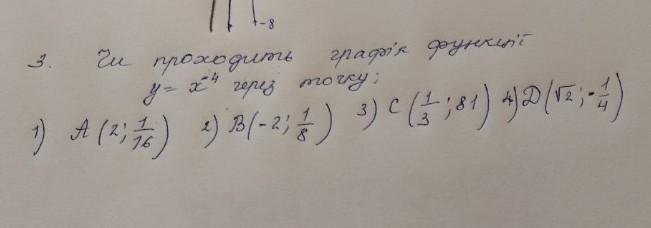 -8
3. Чи проходить графік функції
y = x⁻⁴ через точку:
1) A (2; 1/16) 2) B(-2; 1/8) 3) C (1/3; 81) 4) D(√2; -1/4)